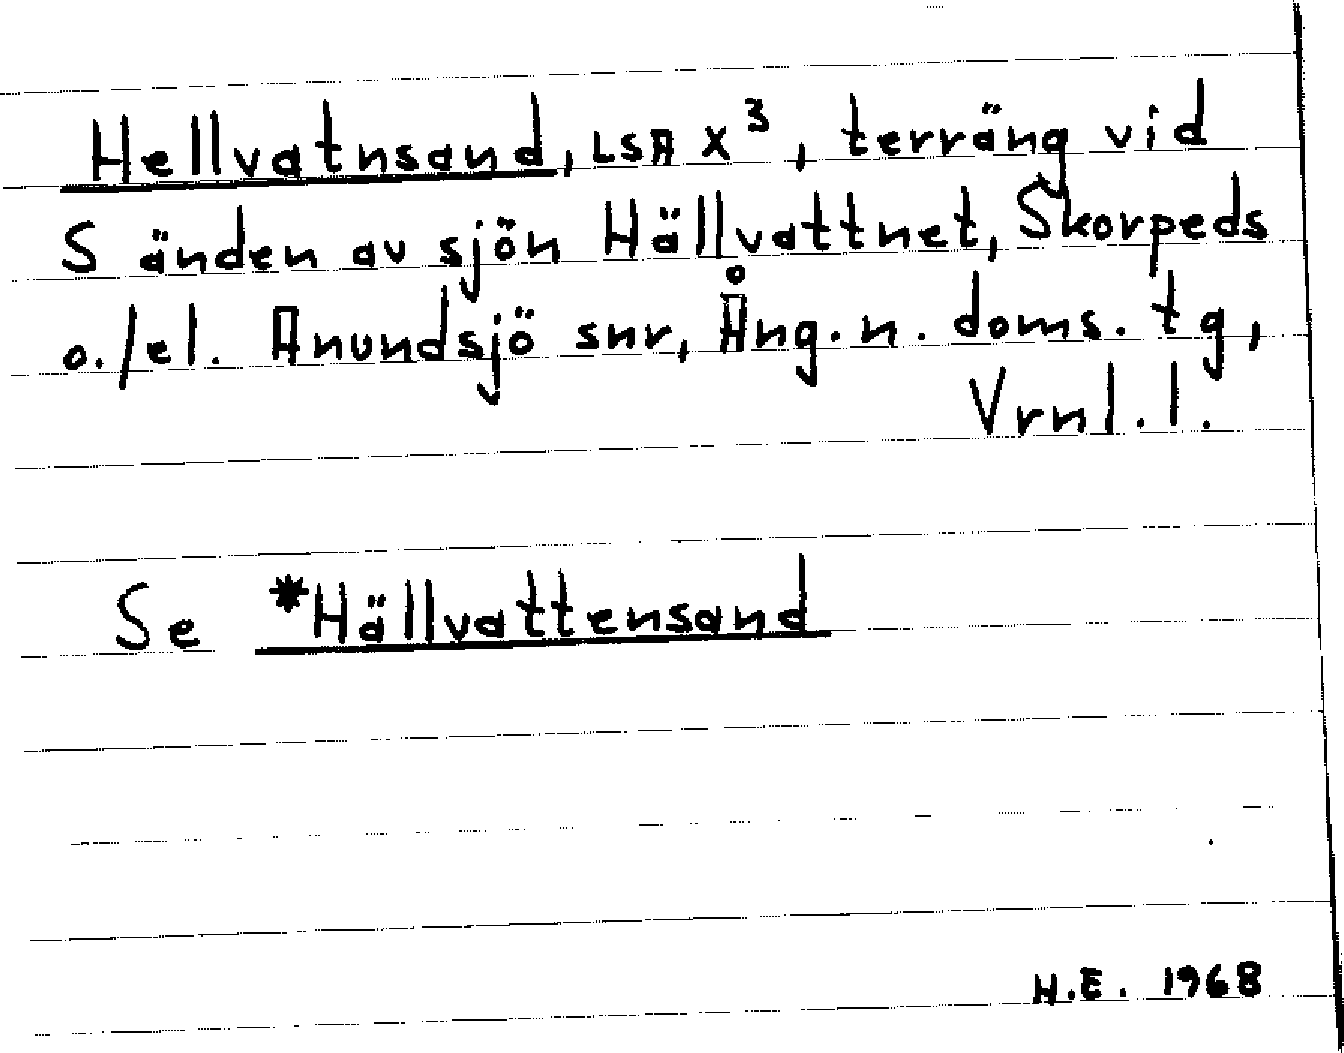 Hellvatnsand, LSA X³, terräng vid
S änden av sjön Hällvattnet, Skorpeds
o./el. Anundsjö snr, Ång. n. doms. tg,
Vrnl. l.
Se *Hällvattensand
H.E. 1968